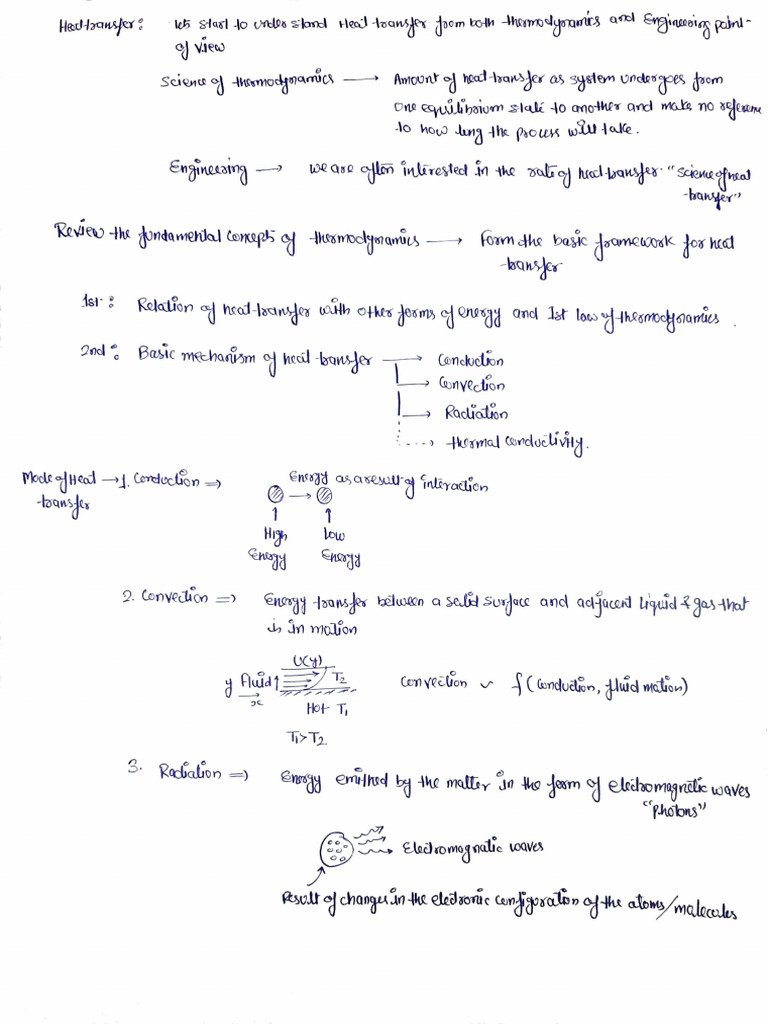 Heat transfer : lets start to understand Heat transfer from both thermodynamics and Engineering point-
of view
Science of thermodynamics → Amount of heat transfer as system undergoes from
one equilibrium state to another and make no reference
to how long the process will take.
Engineering → we are often interested in the rate of heat transfer "Science of heat
transfer"
Review the fundamental concepts of thermodynamics → Form the basic framework for heat
transfer
1st : Relation of heat transfer with other forms of energy and 1st law of thermodynamics .
2nd : Basic mechanism of heat transfer → Conduction
→ Convection
→ Radiation
→ thermal conductivity.
Mode of Heat → 1. Conduction ⇒ Energy as a result of interaction
transfer
High Low
Energy Energy
2. Convection ⇒ Energy transfer between a solid surface and adjacent liquid & gas that
is in motion
U(y)
y fluid T2 Convection ~ f (Conduction, fluid motion)
x
Hot T1
T1 > T2
3. Radiation ⇒ Energy emitted by the matter in the form of electromagnetic waves
"Photons"
Electromagnetic waves
Result of changes in the electronic configuration of the atoms/molecules